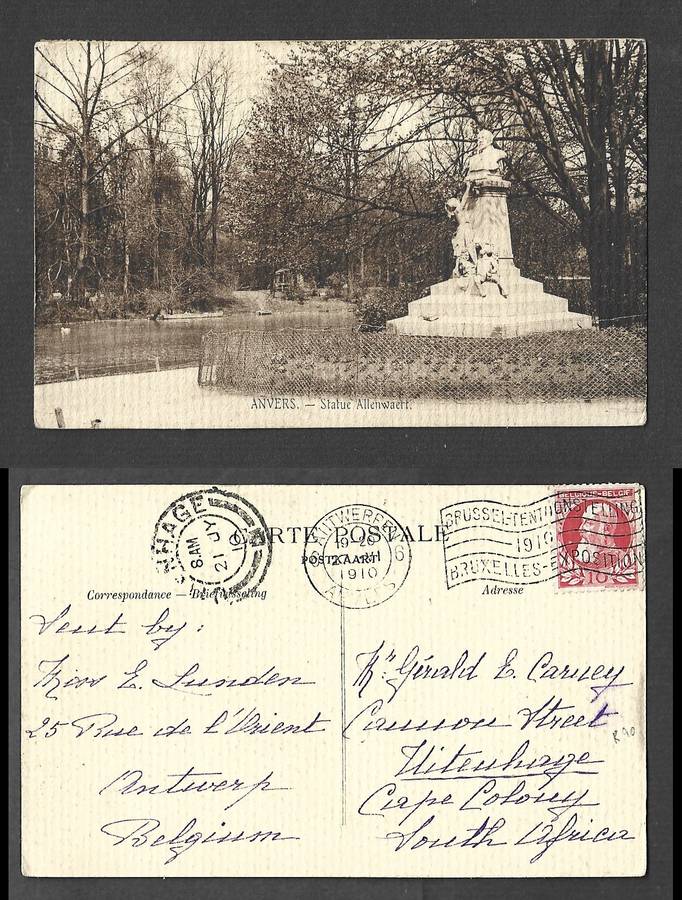 ANVERS. — Statue Allenwaert.
CARTE POSTALE
POSTKAART
Correspondance — Briefwisseling
Adresse
NHAGE
8 AM
21 JY
10
ANTWERPEN
6 6
1910
ANVERS
BRUSSEL-TENTOONSTELLING
1910
BRUXELLES-EXPOSITION
BELGIQUE-BELGIË
10
Sent by:
Miss E. Lunden
25 Rue de l'Orient
Antwerp
Belgium
Mr. Gérald E. Carney
Cannon Street
Uitenhage
Cape Colony
South Africa
R90